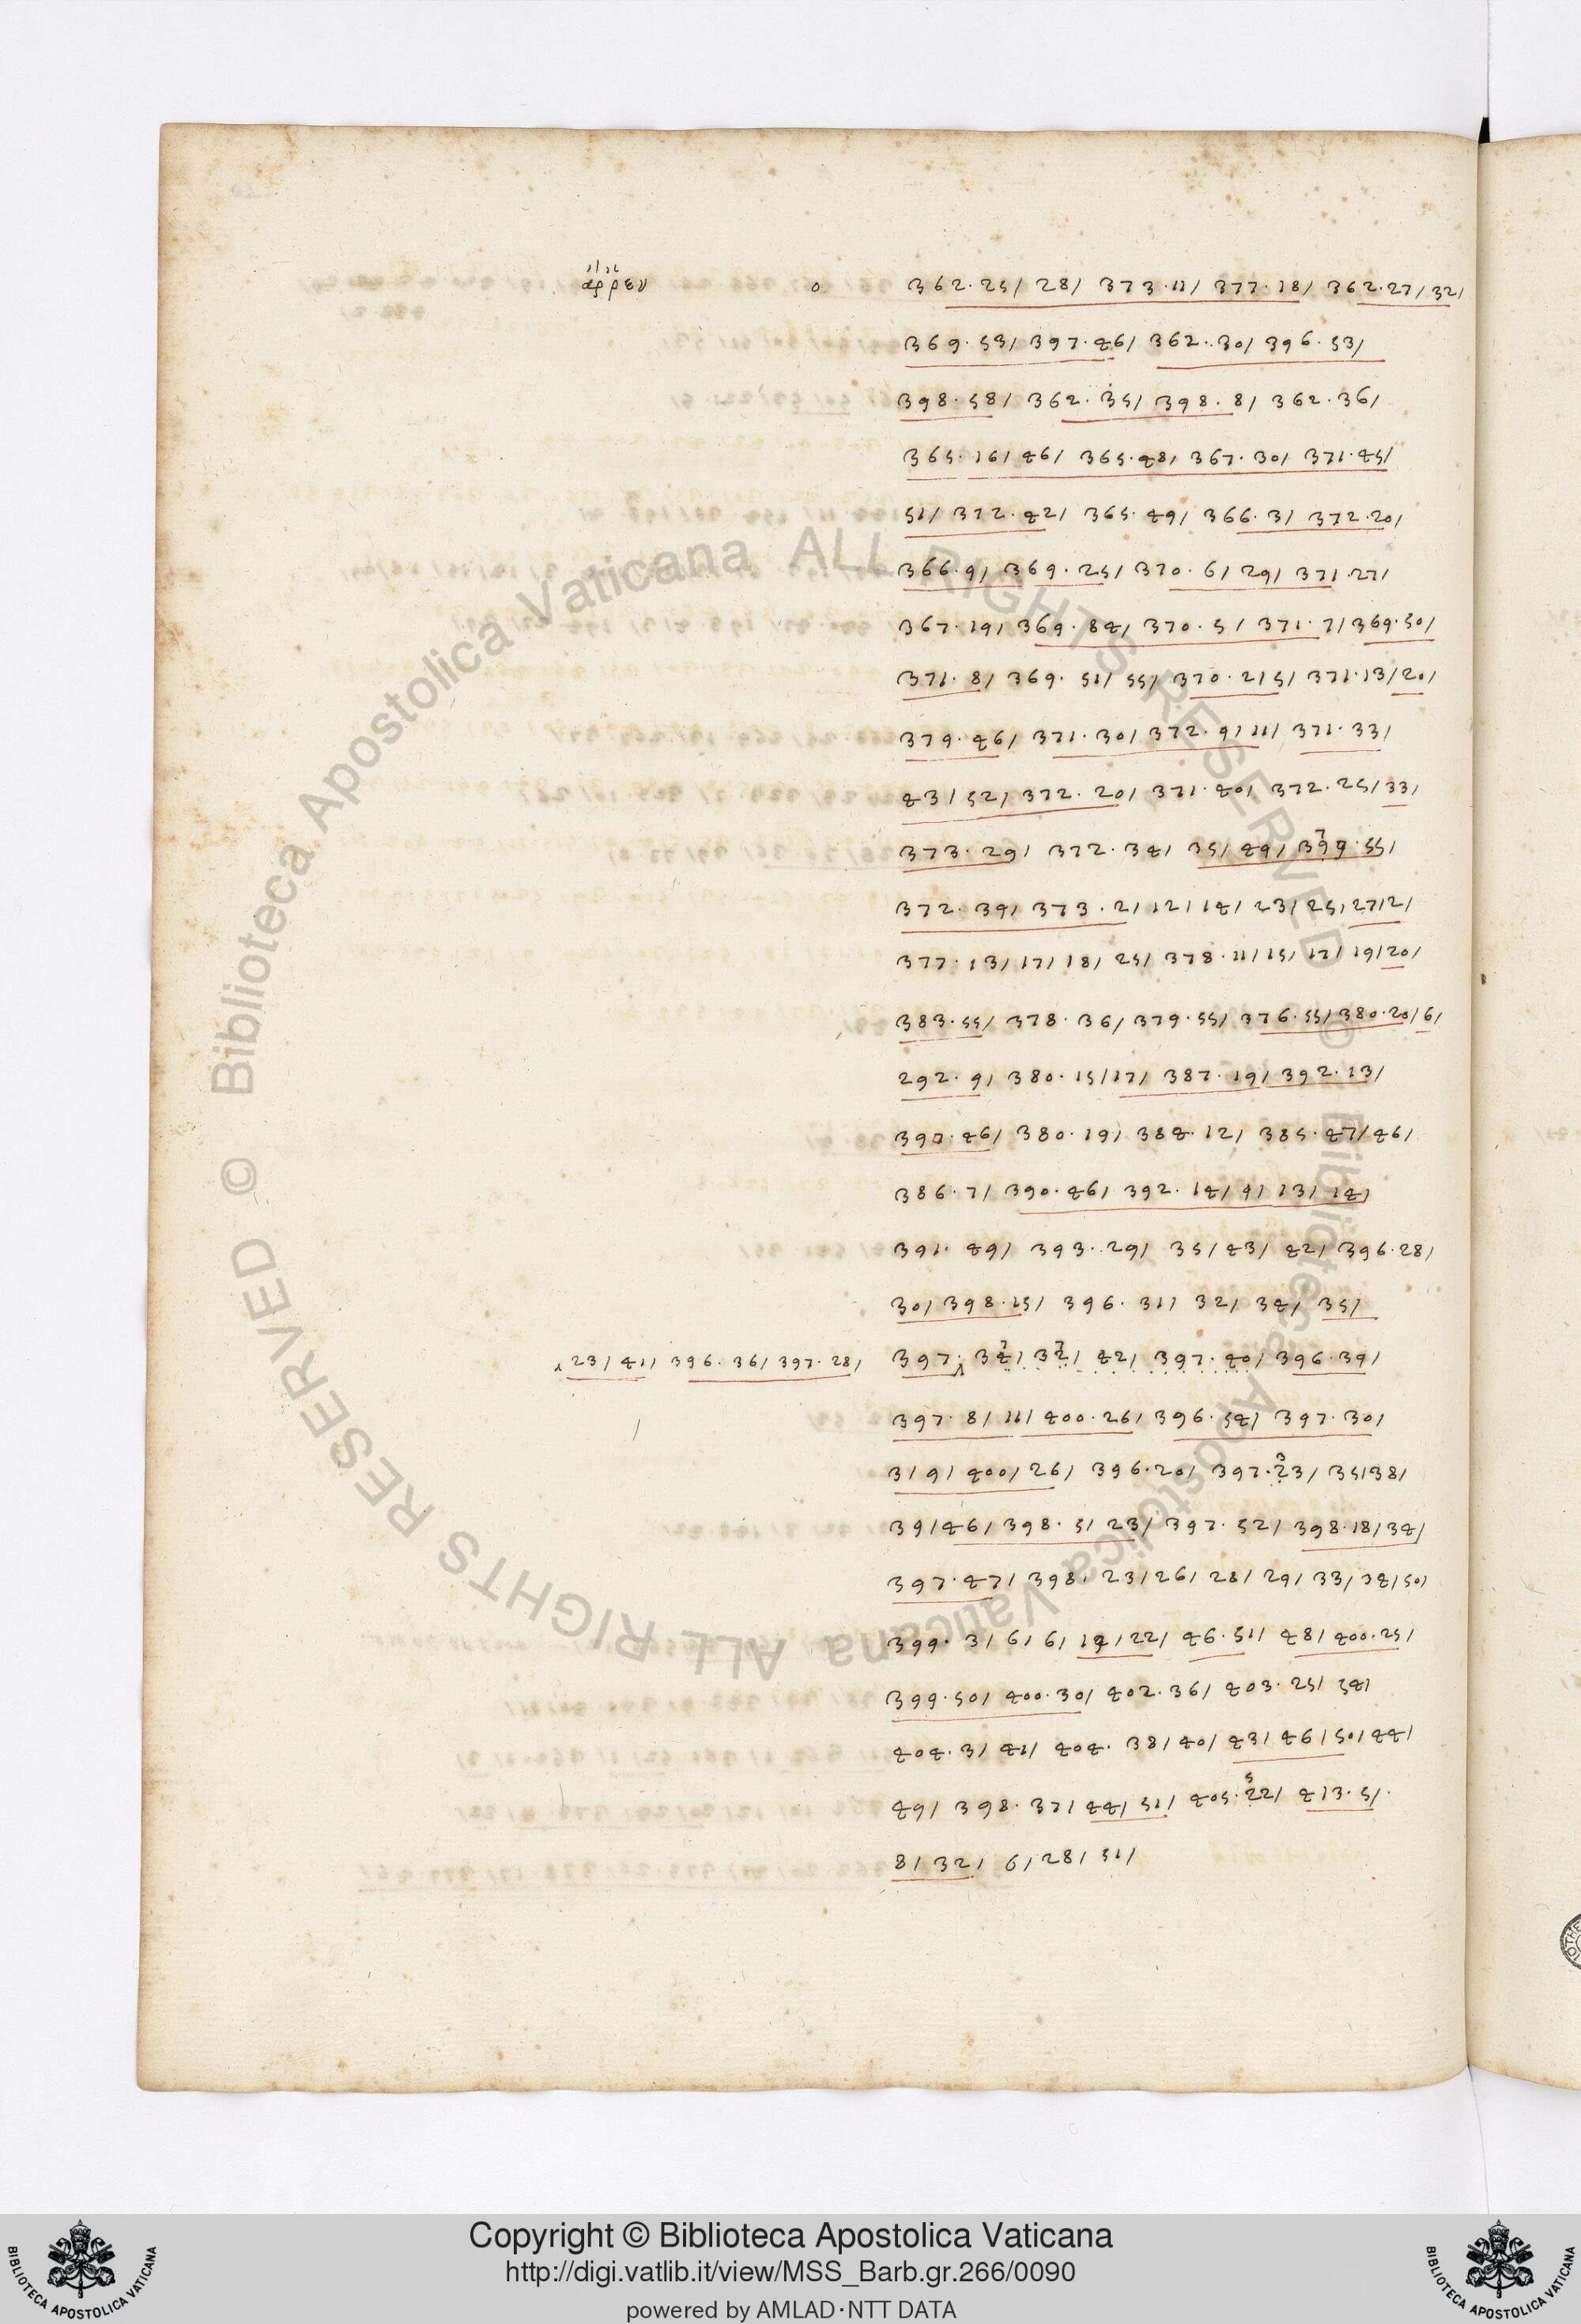 ἄῤῥεν ο 362.25/ 28/ 373.11/ 377.18/ 362.27/ 32/
369.53/ 397.46/ 362.30/ 396.53/
398.58/ 362.35/ 398.8/ 362.36/
365.16/ 46/ 365.48/ 367.30/ 371.45/
51/ 372.42/ 365.49/ 366.3/ 372.20/
366.9/ 369.25/ 370.6/ 29/ 371.27/
367.19/ 369.84/ 370.5/ 371.7/ 369.50/
371.8/ 369.51/ 55/ 370.2/5/ 371.13/ 20/
379.46/ 371.30/ 372.9/ 11/ 371.33/
43/ 52/ 372.20/ 371.40/ 372.25/ 33/
373.29/ 372.34/ 35/ 49/ 399.55/
372.39/ 373.2/ 12/ 14/ 23/ 25/ 27/2/
377.13/ 17/ 18/ 25/ 378.11/ 15/ 17/ 19/ 20/
383.55/ 378.36/ 379.55/ 376.55/ 380.20/ 6/
292.9/ 380.15/ 17/ 387.19/ 392.13/
397.46/ 380.19/ 384.12/ 385.47/ 46/
386.7/ 390.46/ 392.14/ 9/ 13/ 14/
391.49/ 393.29/ 35/ 43/ 42/ 396.28/
30/ 398.15/ 396.31/ 32/ 34/ 35/
23/ 41/ 396.36/ 397.28/ 397. 34/ 32/ 42/ 397.40/ 396.39/
397.8/ 11/ 400.26/ 396.54/ 397.30/
3/ 9/ 400/ 26/ 396.20/ 397.23/ 35/38/
39/ 46/ 398.5/ 23/ 397.52/ 398.18/ 34/
397.47/ 398. 23/ 26/ 28/ 29/ 33/ 34/ 50/
399.3/ 6/ 6/ 14/ 22/ 46.51/ 48/ 400.25/
399.50/ 400.30/ 402.36/ 403.25/ 54/
404.3/ 41/ 404.38/ 40/ 43/ 46/ 50/ 44/
49/ 398.37/ 44/ 51/ 405.22/ 413.5/.
8/ 32/ 6/ 28/ 51/
© Biblioteca Apostolica Vaticana ALL RIGHTS RESERVED
© Biblioteca Apostolica Vaticana ALL RIGHTS RESERVED
Copyright © Biblioteca Apostolica Vaticana
http://digi.vatlib.it/view/MSS_Barb.gr.266/0090
powered by AMLAD·NTT DATA
BIBLIOTECA APOSTOLICA VATICANA
BIBLIOTECA APOSTOLICA VATICANA